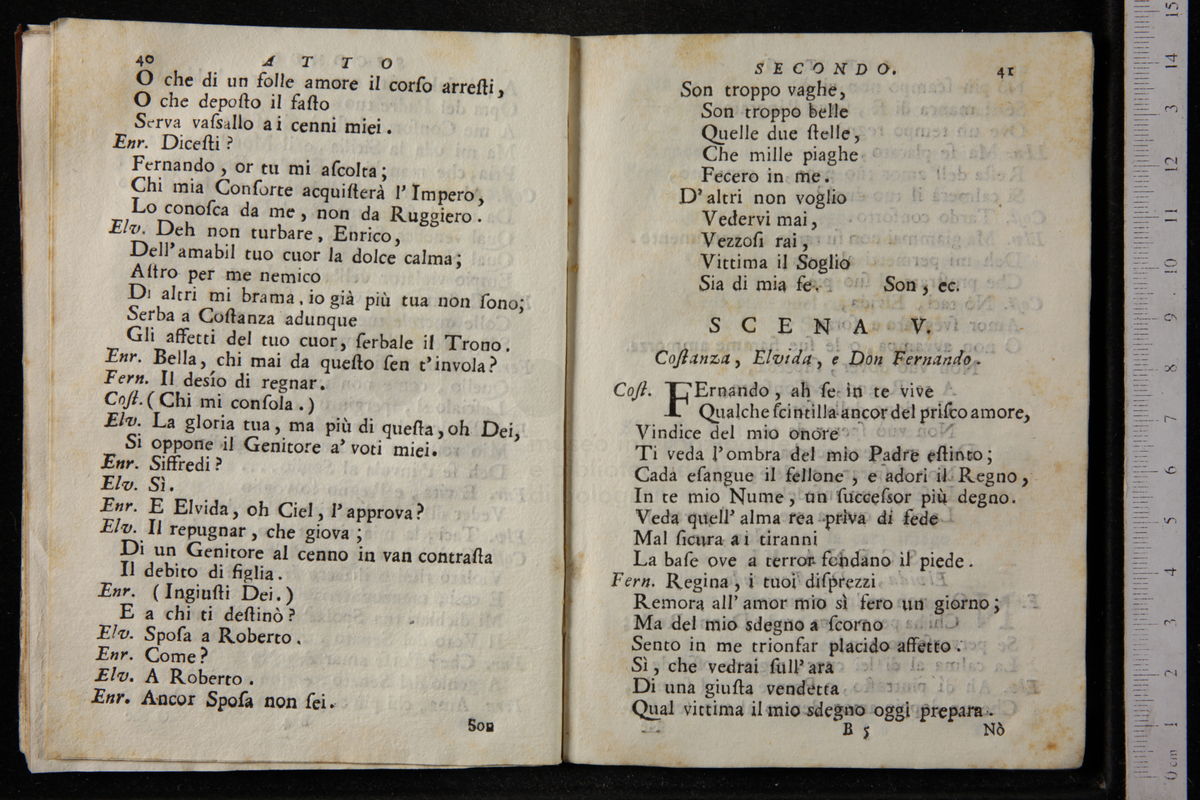 40 ATTO
O che di un folle amore il corſo arreſti,
O che depoſto il faſto
Serva vaſsallo ai cenni miei.
Enr. Diceſti?
Fernando, or tu mi aſcolta;
Chi mia Conſorte acquiſterà l'Impero,
Lo conoſca da me, non da Ruggiero.
Elv. Deh non turbare, Enrico,
Dell'amabil tuo cuor la dolce calma;
Aſtro per me nemico
Di altri mi brama, io già più tua non ſono;
Serba a Coſtanza adunque
Gli affetti del tuo cuor, ſerbale il Trono.
Enr. Bella, chi mai da queſto ſen t'invola?
Fern. Il desío di regnar.
Coſt. (Chi mi conſola.)
Elv. La gloria tua, ma più di queſta, oh Dei,
Si oppone il Genitore a' voti miei.
Enr. Siffredi?
Elv. Sì.
Enr. E Elvida, oh Ciel, l'approva?
Elv. Il repugnar, che giova;
Di un Genitore al cenno in van contraſta
Il debito di figlia.
Enr. (Ingiuſti Dei.)
E a chi ti deſtinò?
Elv. Spoſa a Roberto.
Enr. Come?
Elv. A Roberto.
Enr. Ancor Spoſa non ſei.
Son
SECONDO. 41
Son troppo vaghe,
Son troppo belle
Quelle due ſtelle,
Che mille piaghe
Fecero in me.
D'altri non voglio
Vedervi mai,
Vezzoſi rai,
Vittima il Soglio
Sia di mia fe. Son, ec.
SCENA V.
Coſtanza, Elvida, e Don Fernando.
Coſt. FErnando, ah ſe in te vive
Qualche ſcintilla ancor del priſco amore,
Vindice del mio onore
Ti veda l'ombra del mio Padre eſtinto;
Cada eſangue il fellone, e adori il Regno,
In te mio Nume, un ſucceſsor più degno.
Veda quell'alma rea priva di fede
Mal ſicura ai tiranni
La baſe ove a terror fondano il piede.
Fern. Regina, i tuoi diſprezzi
Remora all'amor mio sì fero un giorno;
Ma del mio sdegno a ſcorno
Sento in me trionfar placido affetto.
Sì, che vedrai ſull'ara
Di una giuſta vendetta
Qual vittima il mio sdegno oggi prepara.
B 5 Nò